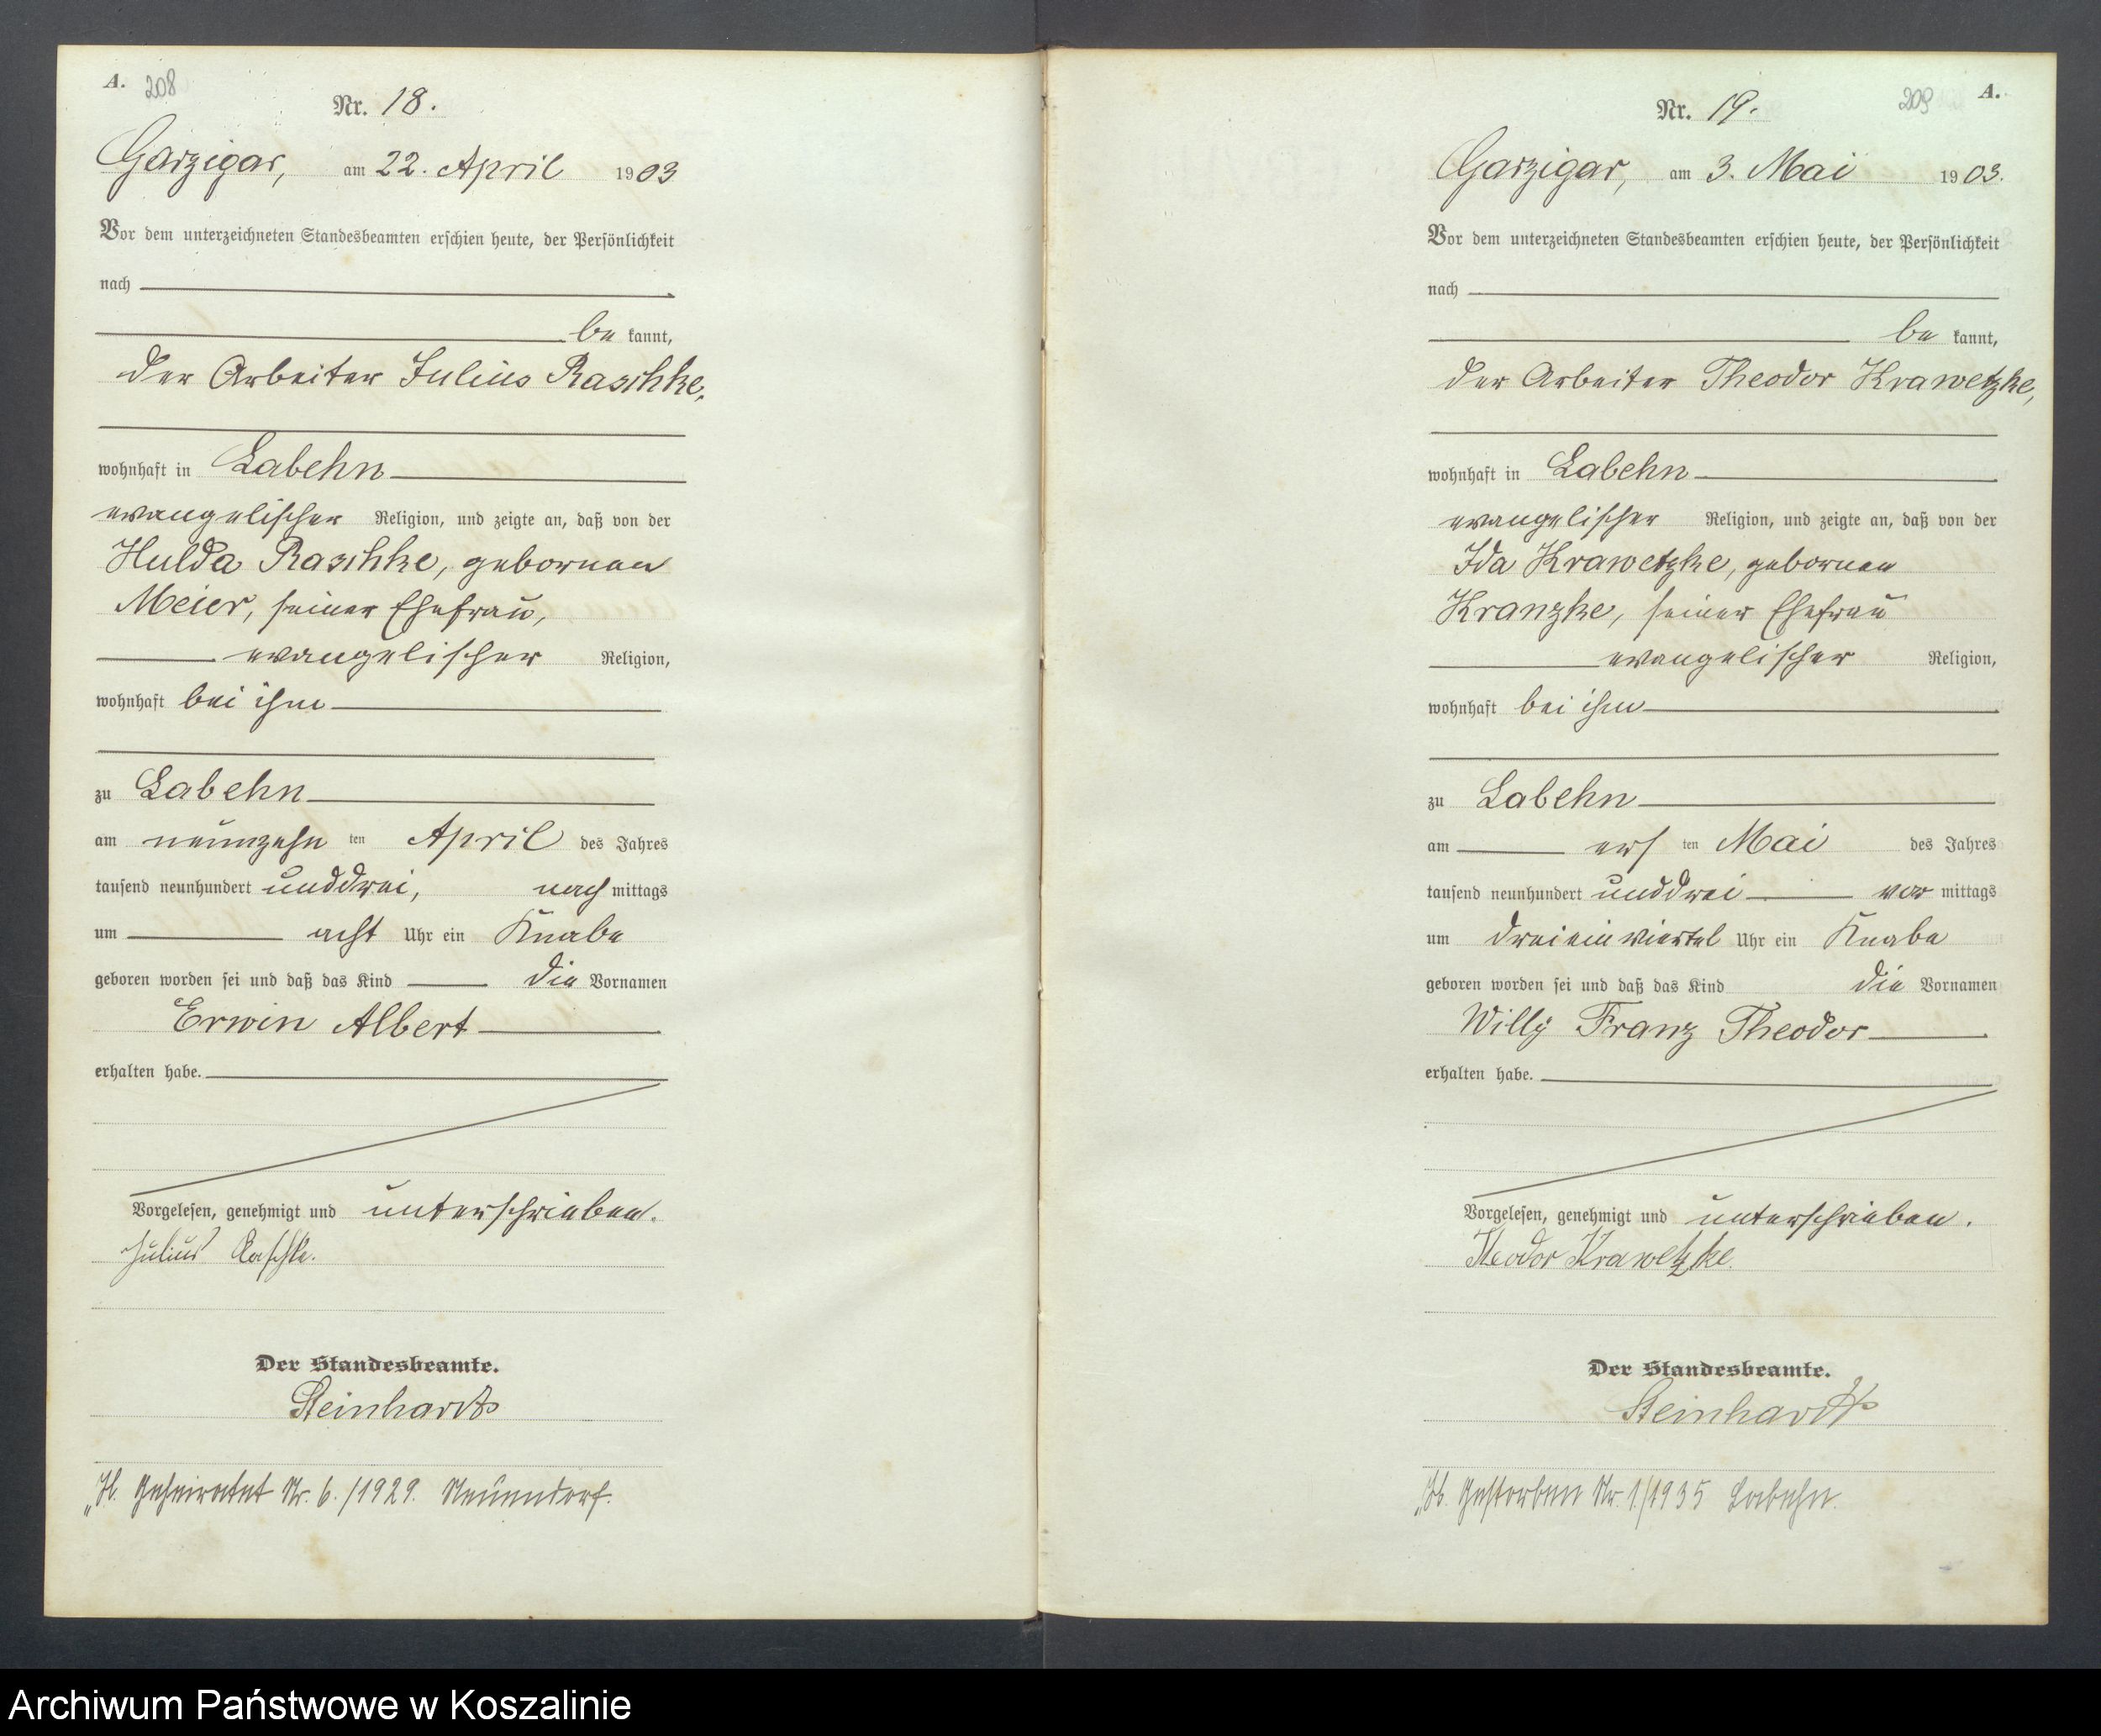 A. 208
Nr. 18.
Garzigar, am 22. April 1903
Vor dem unterzeichneten Standesbeamten erschien heute, der Persönlichkeit
nach
be kannt,
der Arbeiter Julius Raschke,
wohnhaft in Labehn
evangelischer Religion, und zeigte an, daß von der
Hulda Raschke, gebornen
Meier, seiner Ehefrau,
evangelischer Religion,
wohnhaft bei ihm
zu Labehn
am neunzehn ten April des Jahres
tausend neunhundert unddrei, nach mittags
um acht Uhr ein Knabe
geboren worden sei und daß das Kind die Vornamen
Erwin Albert
erhalten habe.
Vorgelesen, genehmigt und unterschrieben.
Julius Raschke.
Der Standesbeamte.
Steinhardt
„H. Geheiratet Nr. 6./1929. Neuendorf.
209 A.
Nr. 19.
Garzigar, am 3. Mai 1903.
Vor dem unterzeichneten Standesbeamten erschien heute, der Persönlichkeit
nach
be kannt,
der Arbeiter Theodor Krawetzke,
wohnhaft in Labehn
evangelischer Religion, und zeigte an, daß von der
Ida Krawetzke, gebornen
Kranzke, seiner Ehefrau
evangelischer Religion,
wohnhaft bei ihm
zu Labehn
am ers ten Mai des Jahres
tausend neunhundert unddrei vor mittags
um dreieinviertel Uhr ein Knabe
geboren worden sei und daß das Kind die Vornamen
Willy Franz Theodor
erhalten habe.
Vorgelesen, genehmigt und unterschrieben.
Theodor Krawetzke.
Der Standesbeamte.
Steinhardt
Gestorben Nr. 1/1935 Labehn.
Archiwum Państwowe w Koszalinie